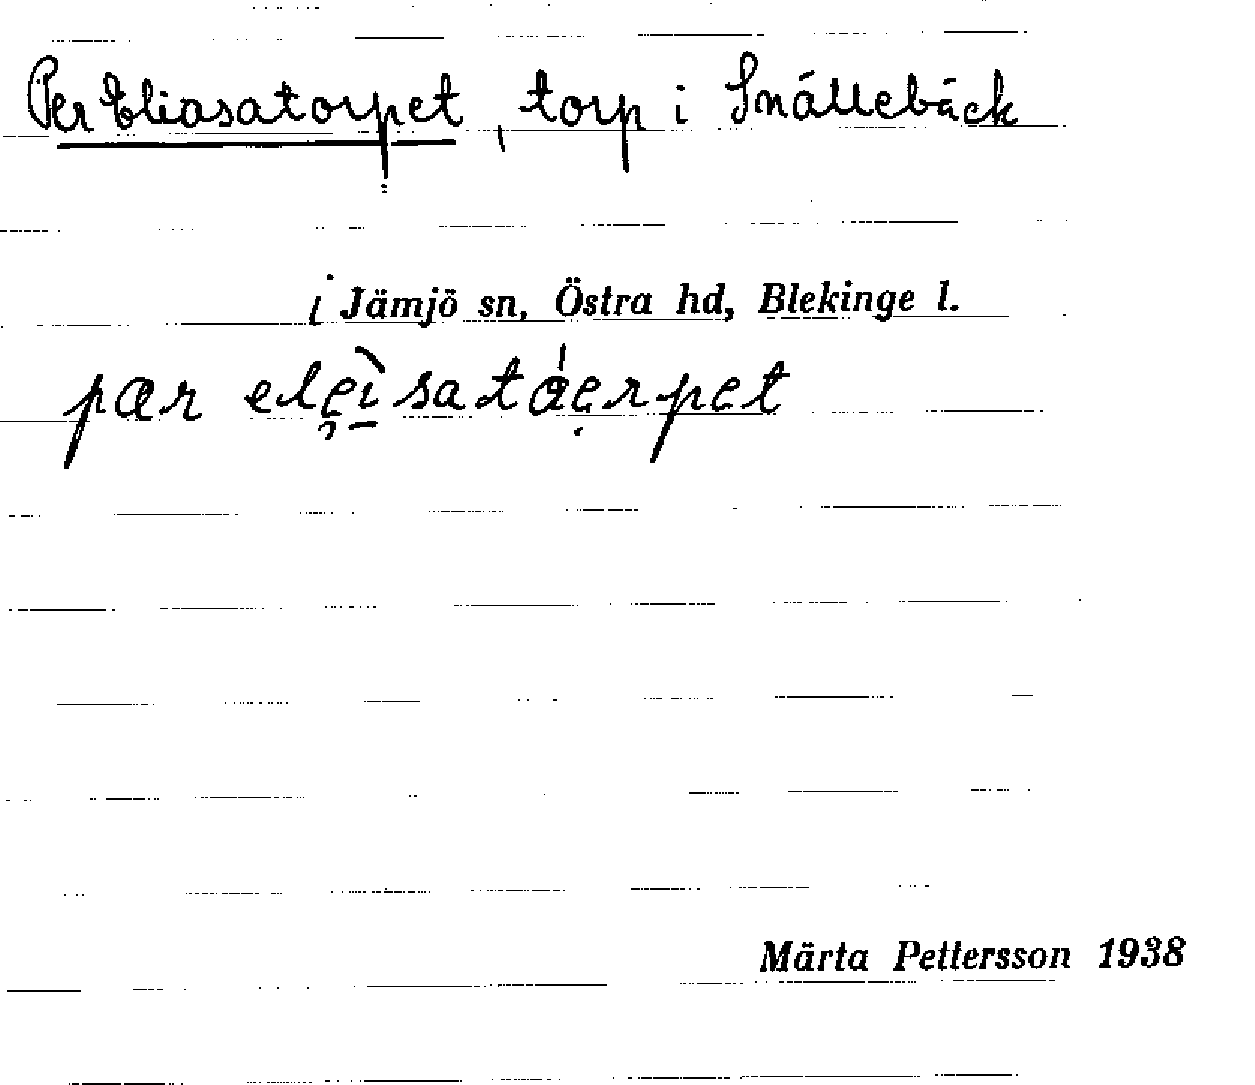 Per Eliasatorpet, torp i Snällebäck
i Jämjö sn, Östra hd, Blekinge l.
pær
Märta Pettersson 1938